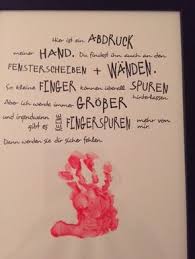 Hier ist ein ABDRUCK
meiner HAND. Du findest ihn auch an den
FENSTERSCHEIBEN + WÄNDEN.
So kleine FINGER können überall SPUREN
hinterlassen
Aber ich werde immer GRÖßER
und irgendwann
gibt es KEINE FINGERSPUREN mehr von
mir
Dann werden sie dir sicher fehlen.